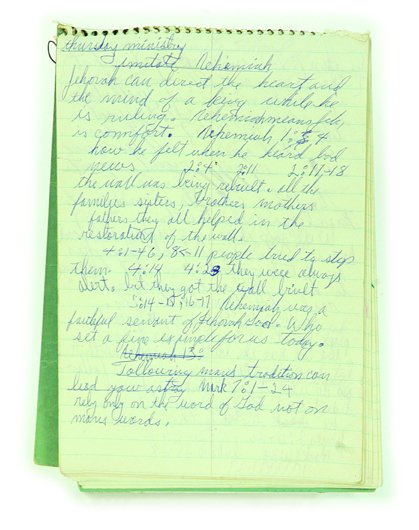 thursday ministry
imitate Nehemiah
Jehovah can direct the heart and
the mind of a king while he
is ruling. Nehemiah means Jah
is comfort. Nehemiah 1: 4
how he felt when he heard bad
news 2:4 2:11 2:17-18
the wall was being rebuilt. all the
families sisters, brothers mothers
fathers they all helped in the
restoration of the wall.
4:1-46, 8-11 people tried to stop
them 4:14 4:23 they were always
alert. but they got the wall built
5:14-15, 16-17 Nehemiah was a
faithful servant of Jehovah God. Who
set a fine example for us today.
Nehemiah 13:
Following mans tradition can
lead you astray Mark 7:1-24
rely only on the word of God not on
mans words.